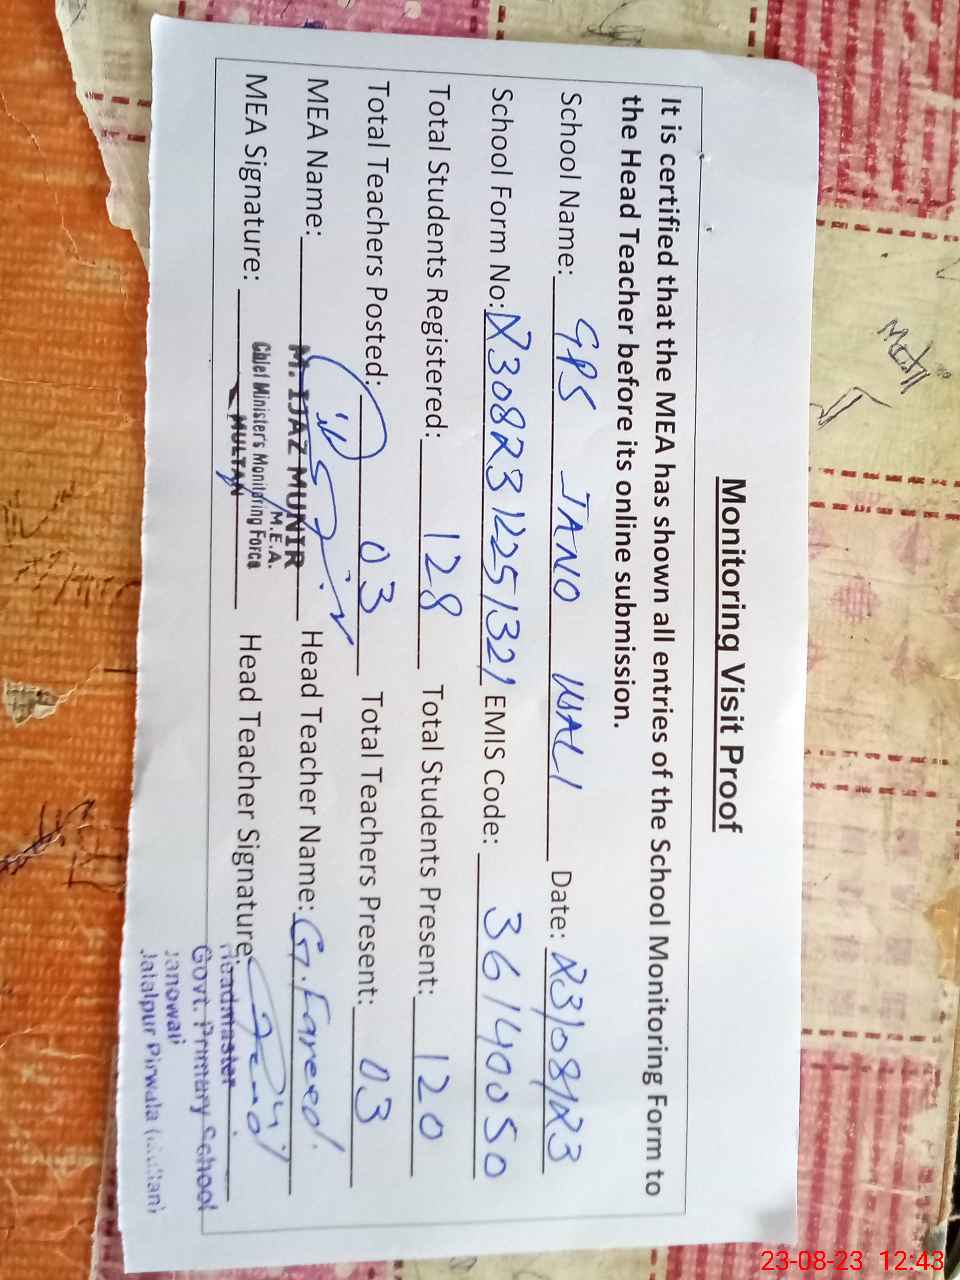 Monitoring Visit Proof
It is certified that the MEA has shown all entries of the School Monitoring Form to
the Head Teacher before its online submission.
School Name: GPS JANO WALI Date: 23/08/23
School Form No: 23082312251321 EMIS Code: 36140050
Total Students Registered: 128 Total Students Present: 120
Total Teachers Posted: 03 Total Teachers Present: 03
MEA Name: M. IJAZ MUNIR Head Teacher Name: G. Fareed
M.E.A.
Chief Minister's Monitoring Force
MEA Signature: MULTAN Head Teacher Signature:
Headmaster
Govt. Primary School
Janowali
Jalalpur Pirwala
23-08-23 12:43